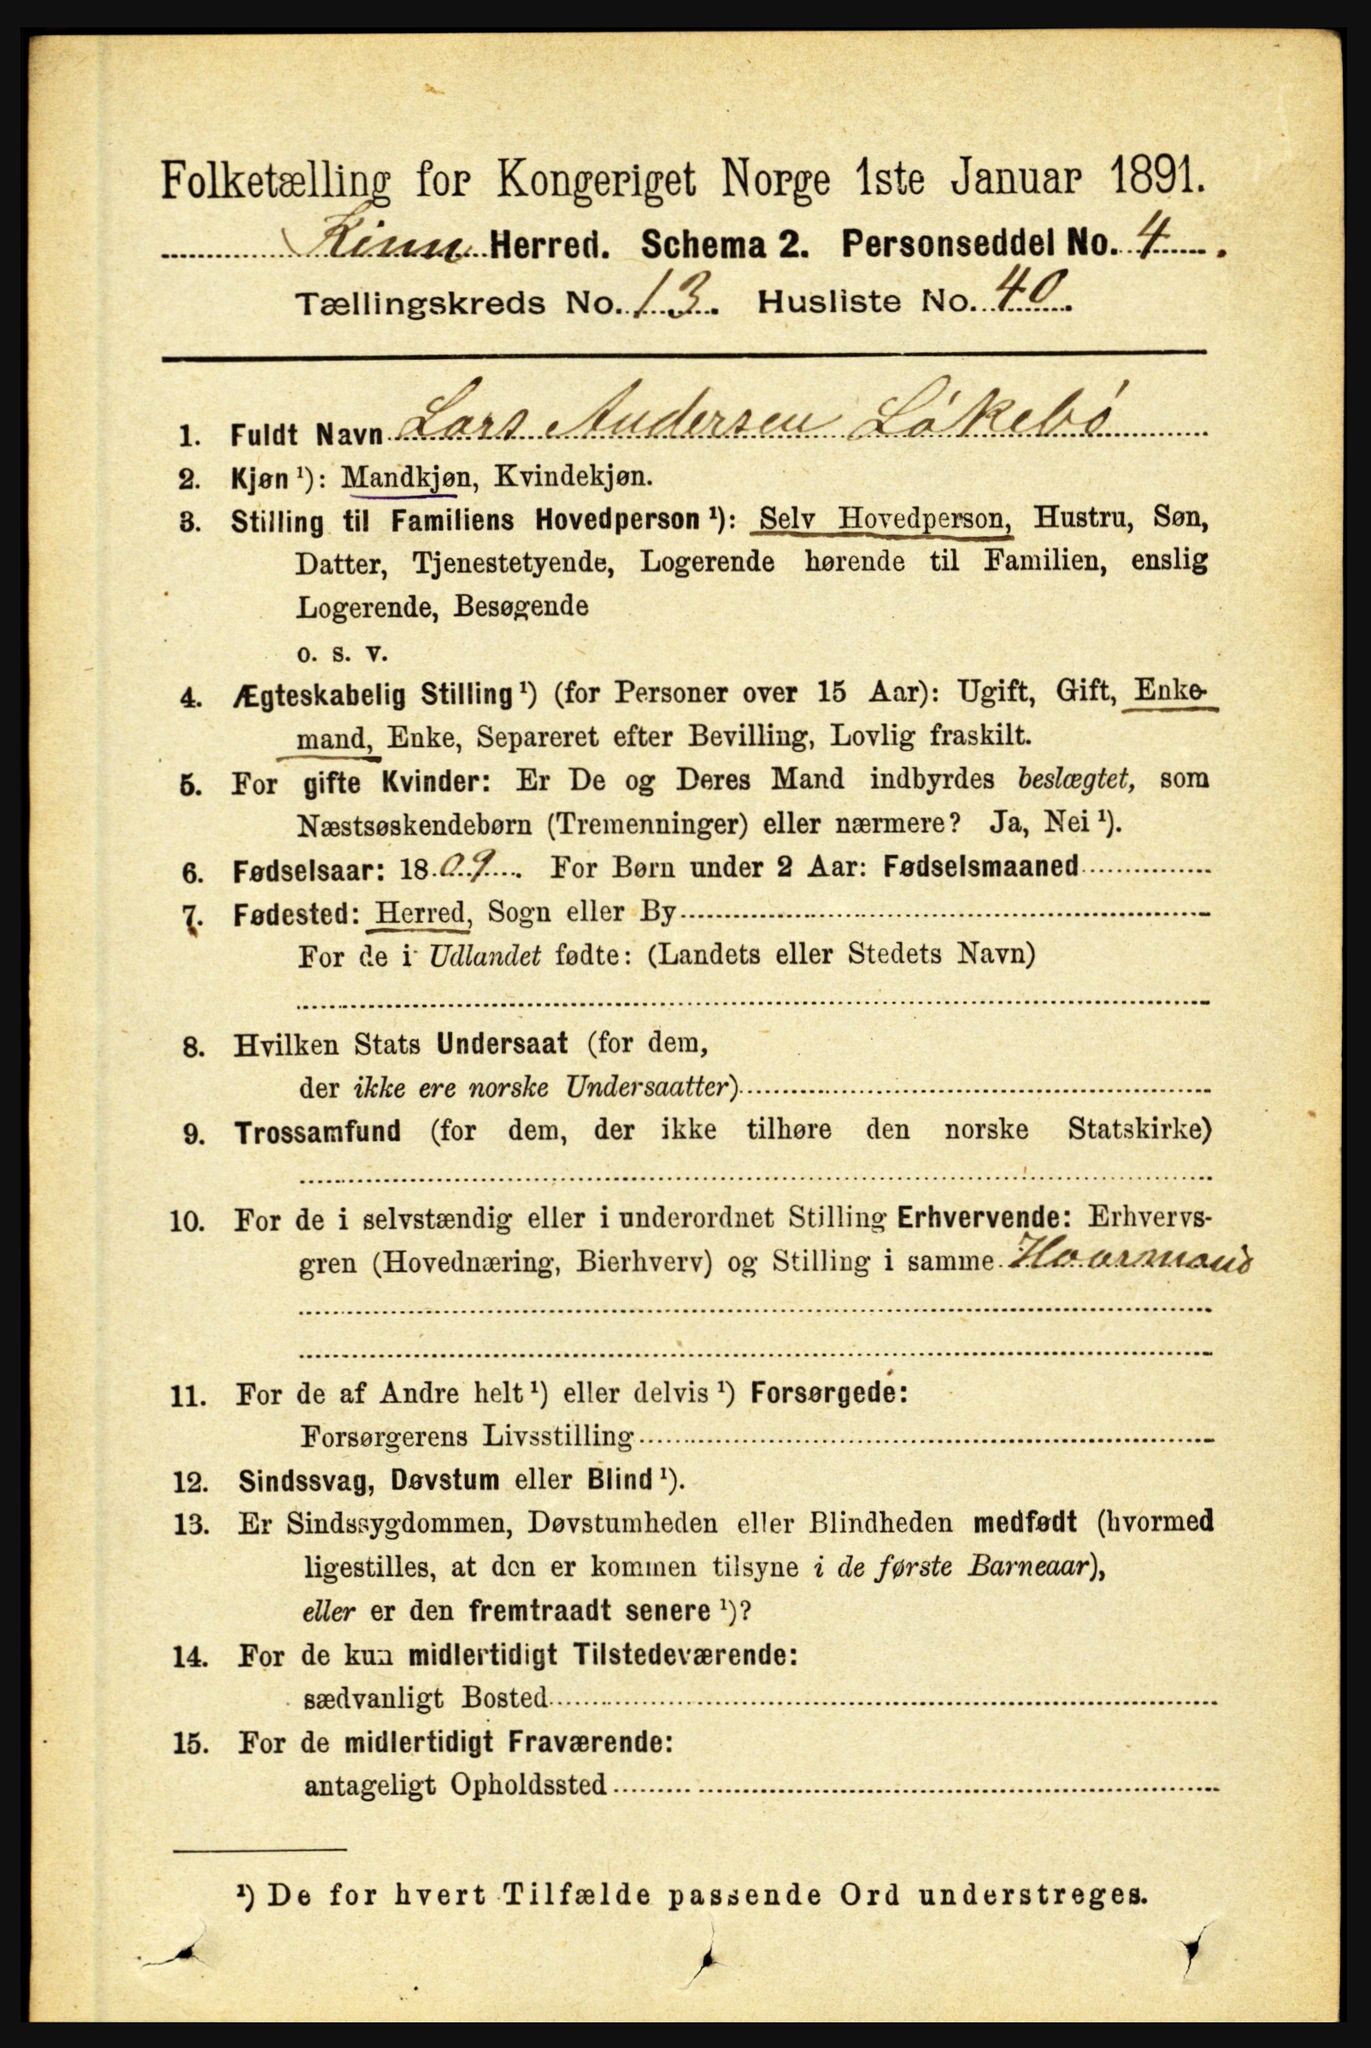 Folketælling for Kongeriget Norge 1ste Januar 1891.
Kinn Herred. Schema 2. Personseddel No. 4.
Tællingskreds No. 13. Husliste No. 40.
1. Fuldt Navn Lars Andersen Løkebø
2. Kjøn¹): Mandkjøn, Kvindekjøn.
3. Stilling til Familiens Hovedperson¹): Selv Hovedperson, Hustru, Søn,
Datter, Tjenestetyende, Logerende hørende til Familien, enslig
Logerende, Besøgende
o. s. v.
4. Ægteskabelig Stilling¹) (for Personer over 15 Aar): Ugift, Gift, Enke-
mand, Enke, Separeret efter Bevilling, Lovlig fraskilt.
5. For gifte Kvinder: Er De og Deres Mand indbyrdes beslægtet, som
Næstsøskendebørn (Tremenninger) eller nærmere? Ja, Nei¹).
6. Fødselsaar: 1809. For Børn under 2 Aar: Fødselsmaaned
7. Fødested: Herred, Sogn eller By
For de i Udlandet fødte: (Landets eller Stedets Navn)
8. Hvilken Stats Undersaat (for dem,
der ikke ere norske Undersaatter)
9. Trossamfund (for dem, der ikke tilhøre den norske Statskirke)
10. For de i selvstændig eller i underordnet Stilling Erhvervende: Erhvervs-
gren (Hovednæring, Bierhverv) og Stilling i samme Kaarmand
11. For de af Andre helt¹) eller delvis¹) Forsørgede:
Forsørgerens Livsstilling
12. Sindssvag, Døvstum eller Blind¹).
13. Er Sindssygdommen, Døvstumheden eller Blindheden medfødt (hvormed
ligestilles, at den er kommen tilsyne i de første Barneaar),
eller er den fremtraadt senere¹)?
14. For de kun midlertidigt Tilstedeværende:
sædvanligt Bosted
15. For de midlertidigt Fraværende:
antageligt Opholdssted
¹) De for hvert Tilfælde passende Ord understreges.